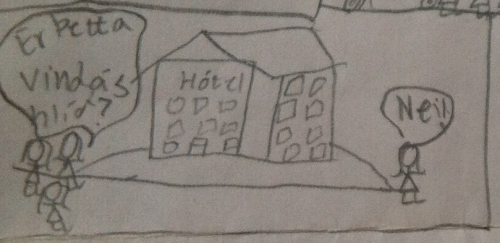 Er Þetta
Vindás
hlíð?
Hótel
Nei!